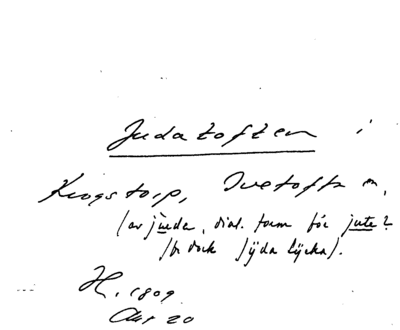 Judatoften i
Krogstorp, Ivetofta sn,
(av juda, dial. form för jute?
Jfr dock Jýda lýcka).
H. 1809
Akt 20